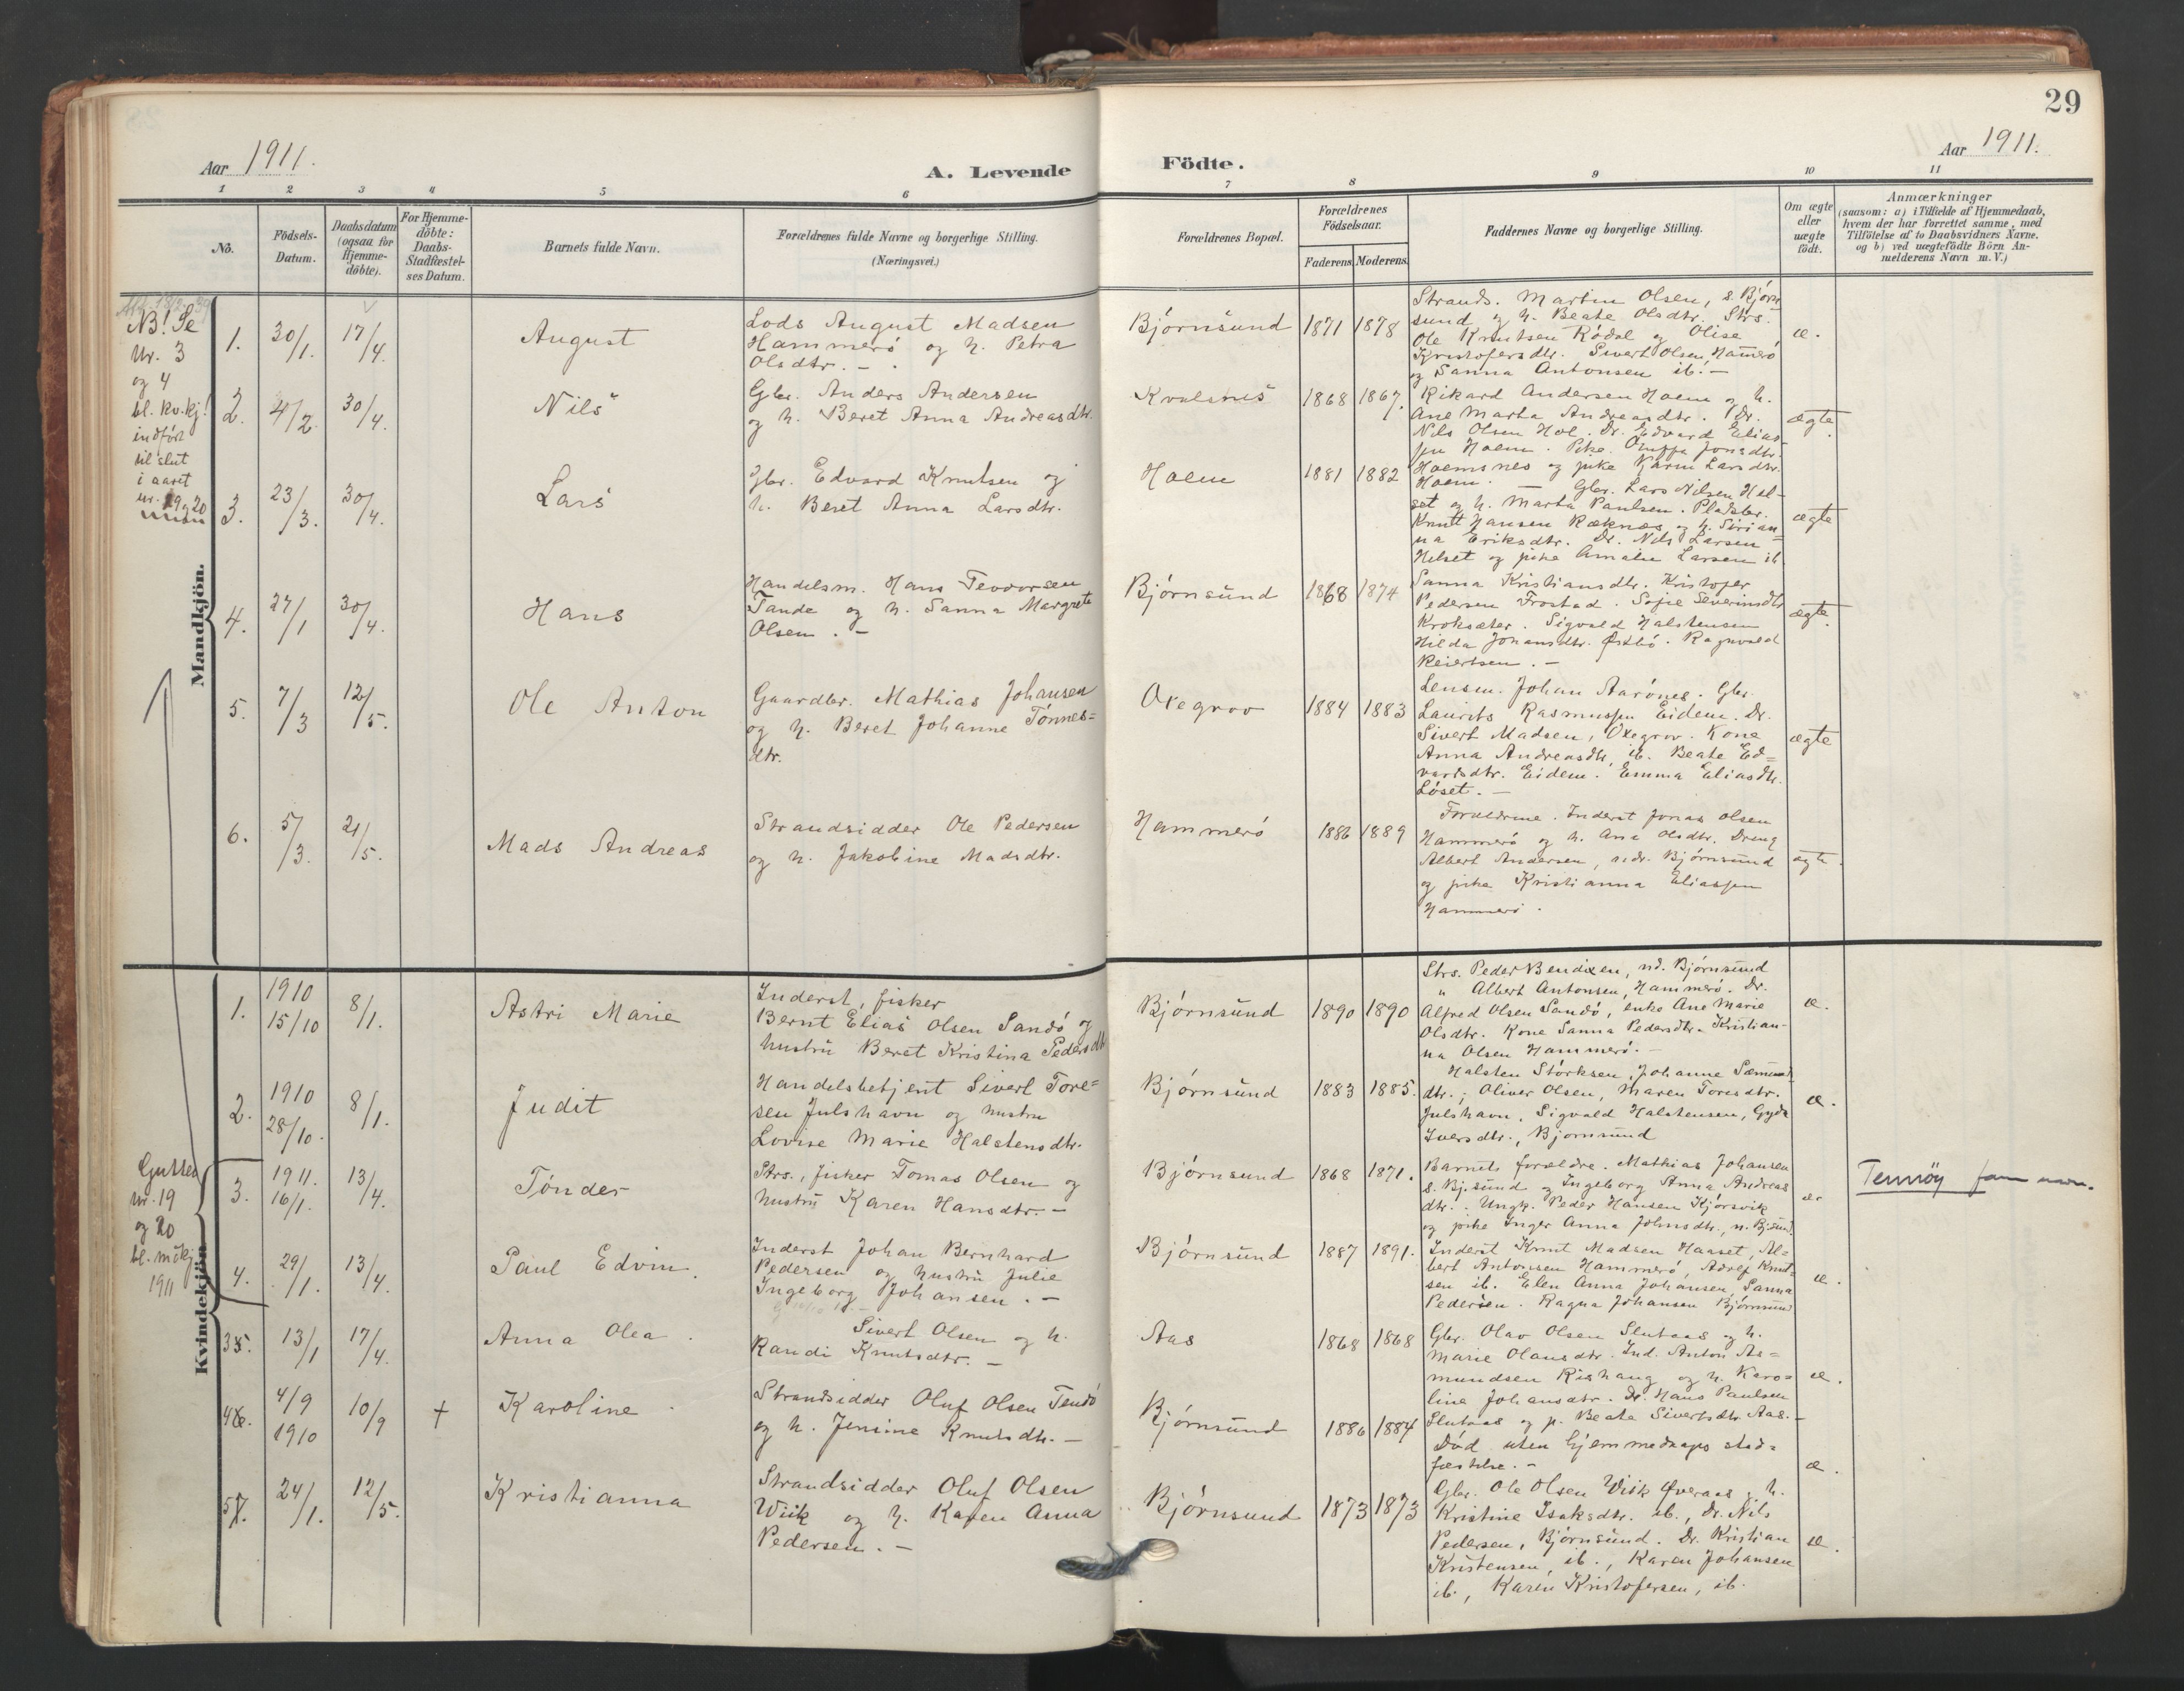 29
Aar 1911.
A. Levende
Födte.
Aar 1911.
1 2 3 4 5 6 7 8 9 10 11
No.
Födsels-
Datum.
Daabsdatum
(ogsaa for
Hjemme-
döbte).
For Hjemme-
döbte:
Daabs-
Stadfæstel-
ses Datum.
Barnets fulde Navn.
Forældrenes fulde Navne og borgerlige Stilling.
(Næringsvei.)
Forældrenes Bopæl.
Forældrenes
Födselsaar.
Faderens.
Moderens.
Faddernes Navne og borgerlige Stilling.
Om ægte
eller
uægte
födt.
Anmærkninger
(saasom: a) i Tilfælde af Hjemmedaab,
hvem der har forrettet samme, med
Tilföielse af to Daabsvidners Navne.
og b) ved uægtefödte Börn An-
melderens Navn m. V.)
NB! Se
Nr. 3
og 4
bl. kv.kj!
indført
til slut
i aaret
nr. 19 og 20
Mandkjön.
1.
30/1.
17/4.
August
Lods August Madsen
Hammerö og h. Petra
Olsdtr. -
Björnsund
1871
1878
Strands. Martin Olsen, s. Björn
sund og h. Beate Olsdtr. Strs.
Ole Knutsen Rödal og Olise
Kristofersdtr. Sivert Olsen, Hamerö
og Sanna Antonsen ib. -
æ.
2.
4/2.
30/4.
Nils
Gbr. Anders Andersen
og h. Beret Anna Andreasdtr.
Kvalsnes
1868
1867.
Rikard Andersen Hoem og h.
Ane Marta Andreasdtr. Dr.
Nils Olsen Hol. Dr. Edvard Elias-
sen Hoem. Pike. Jonsdtr.
Hoemsnes og pike Karen Larsdtr.
Hoem.
ægte.
3.
23/3.
30/4.
Lars
Gbr. Edvard Knutsen og
h. Beret Anna Larsdtr.
Hoem
1881
1882
Gbr. Lars Nilsen Hel-
set og h. Marta Paulsen. Pladsbr.
Knutt Hansen Ræknæs og h. Sirian-
na Eriksdtr. Dr. Nils Larsen
Helset og pike Amalie Larsen ib.
ægte
4.
27/1
30/4.
Hans
Handelsm. Hans Tevoorsen
Tande og h. Sanna Margrete
Olsen. -
Björnsund
1868
1874
Sanna Kristiansdtr. Kristofer
Pedersen Frostad. Sofie Severinsdtr
Kroksæter. Sigvald Halstensen
Hilda Johansdtr. Østbö. Ragnvald
Reiertsen. -
ægte.
5.
7/3
12/5.
Ole Anton
Gaardbr. Mathias Johansen
og h. Beret Johanne Tönnes-
dtr.
Oxegrov
1884
1883
Lensm. Johan Aarönes. Gbr.
Laurits Rasmussen Eidem. Dr.
Sivert Madsen, Oxegrov. Kone
Anna Andreasdtr. ib. Beate Ed-
vardsdtr. Eidem. Emma Eliasdtr.
Löset. -
ægte
6.
5/3.
21/5.
Mads Andreas
Strandsidder Ole Pedersen
og h. Jakobine Madsdtr.
Hammerö
1886
1889
Forældrene. Inderst Jonas Olsen
Hammerö og h. Ane Olsdtr. Dreng
Albert Andersen, ndr. Björnsund
og pike Kristianna Eliassen
Hammerö.
ægte.
Gutter
nr. 19
og 20
bl. m.kj
1911
Kvindekjön.
1.
1910
15/10
8/1.
Astri Marie
Inderst, fisker
Bernt Elias Olsen Sandö og
hustru Beret Kristina Pedersdtr
Björnsund
1890
1890
Strs. Peder Bendixen, nd. Björnsund
" Albert Antonsen, Hammerö. Dr.
Alfred Olsen Sandö, enke Ane Marie
Olsdtr. Kone Sanna Pedersdtr. Kristian-
na Olsen Hammerö. -
æ.
2.
1910
28/10.
8/1.
Judit
Handelsbetjent Sivert Tore-
sen Julshavn og hustru
Lovise Marie Halstensdtr.
Björnsund
1883
1885.
Halsten Störksen, Johanne Samuels
dtr., Oliver Olsen, Maren Toresdtr.
Julshavn, Sigvald Halstensen, Gyda
Iversdtr., Björnsund
æ.
3.
1911.
16/1.
13/4.
Tönder
Strs., fisker Tomas Olsen og
hustru Karen Hansdtr. -
Björnsund
1868
1871.
Barnets forældre. Mathias Johansen
s. Bj.sund og Ingeborg Anna Andreas
dtr. Ungk. Peder Hansen Kjörsvik
og pike Inger Anna Johnsdtr., n. Bj.sund
æ
Tennöy fam navn.
4.
29/1.
13/4.
Paul Edvin.
Inderst Johan Bernhard
Pedersen og hustru Julie
Ingeborg Johansen. -
Björnsund
1887
1891.
Inderst Knut Madsen Haaset, Al-
bert Antonsen Hammerö, Adolf Knut-
sen ib. Elen Anna Johansen, Sanna
Pedersen. Ragna Johansen Björnsund
æ.
3 5.
13/1
17/4.
Anna Olea.
Sivert Olsen og h.
Randi Knutsdtr. -
Aas
1868
1868
Gbr. Olav Olsen Slutaas og h.
Marie Olausdtr. Ind. Anton As-
mundsen Rishaug og h. Karo-
line Johansdtr. Dr. Hans Paulsen
Slutaas og p. Beate Sivertsdtr Aas. -
æ.
4 6.
4/9
1910
10/9
+
Karoline
Strandsidder Oluf Olsen Tendö
og h. Jensine Knutsdtr. -
Björnsund
1886
1884
Död uten hjemmedaaps stad-
fæstelse. -
æ.
5 7.
24/1.
12/5.
Kristianna
Strandsidder Oluf Olsen
Wiik og h. Karen Anna
Pedersen. -
Björnsund
1873
1873
Gbr. Ole Olsen Wiik Øveraas og h.
Kristine Isaksdtr. ib., Dr. Nils
Pedersen, Björnsund. Dr. Kristian
Kristensen, ib., Karen Johansen
ib., Karen Kristofersen, ib.
æ.